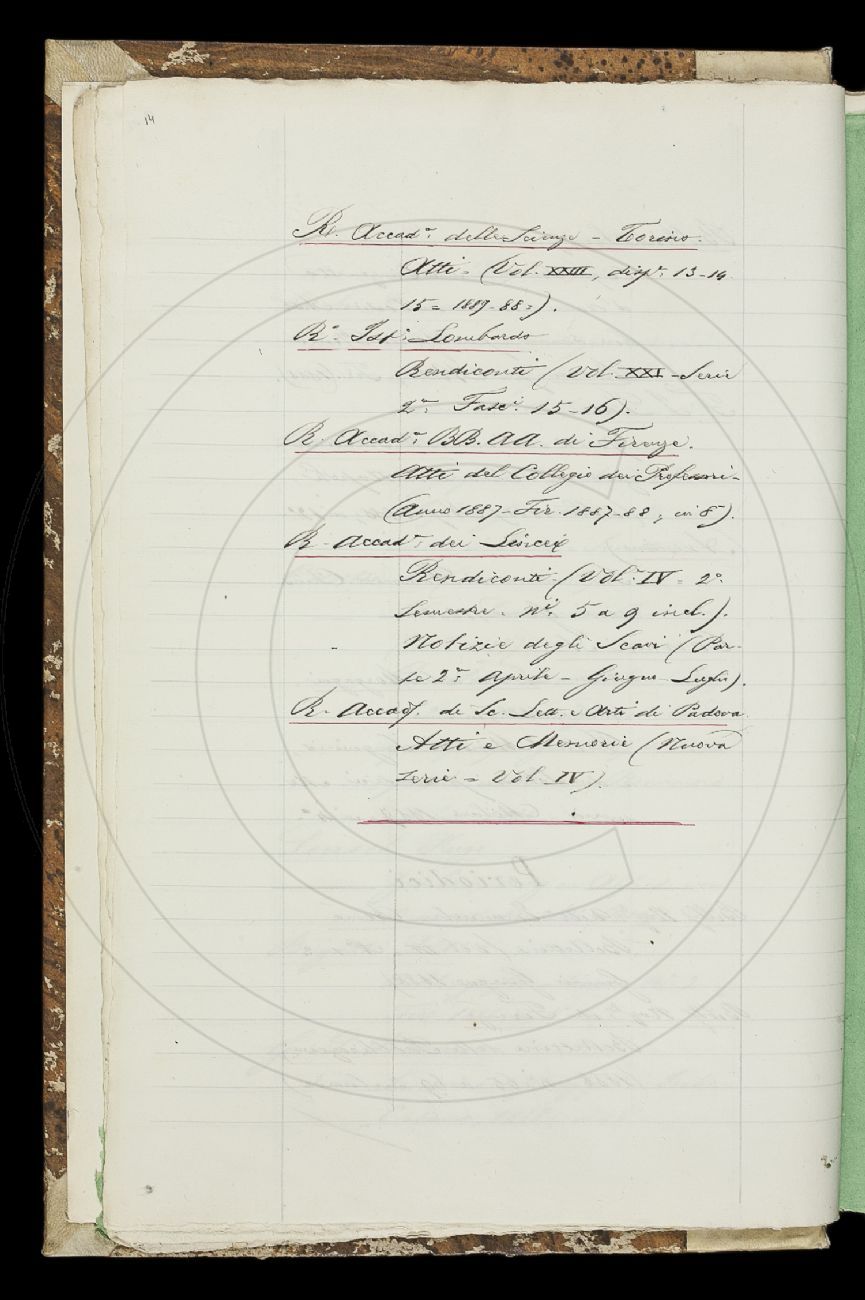 14
R. Accad.a delle Scienze - Torino.
Atti - (Vol. XXIII, disp.e 13-14
15 = 1887-88=).
R.o Ist.o Lombardo
Rendiconti (Vol. XXI - Serie
2.a Fasc.i 15-16).
R. Accad.a BB. AA. di Firenze.
Atti del Collegio dei Professori -
(Anno 1887 - Fir. 1887-88, in 8°).
R. Accad.a dei Lincei
Rendiconti - (Vol. IV - 2°
Semestre - n.i 5 a 9 incl.).
" Notizie degli Scavi (Par-
te 2.a Aprile - Giugno - Luglio).
R. Accad. di Sc. Lett. e Arti di Padova.
Atti e Memorie (Nuova
serie = Vol. IV).